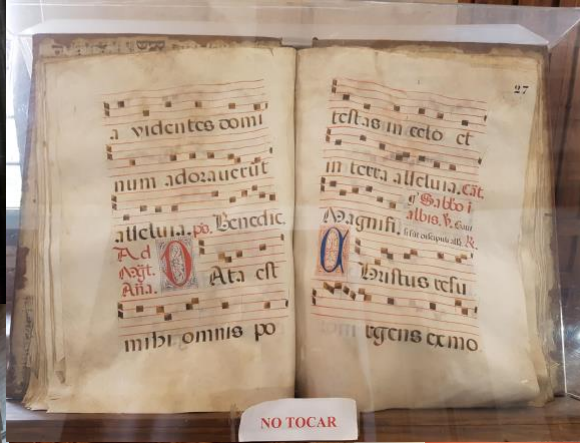 a videntes domi
num adorauerūt
alleluia. ps. Benedic.
Ad
Mgt.
Aña.
Ata est
mihi omnis po
27
testas in celo et
in terra alleluia. Cat.
Sabbo i
albis. V. Gaui
Magnifi. si sūt discipuli all. R.
Hristus resu
rgens ex mo
NO TOCAR